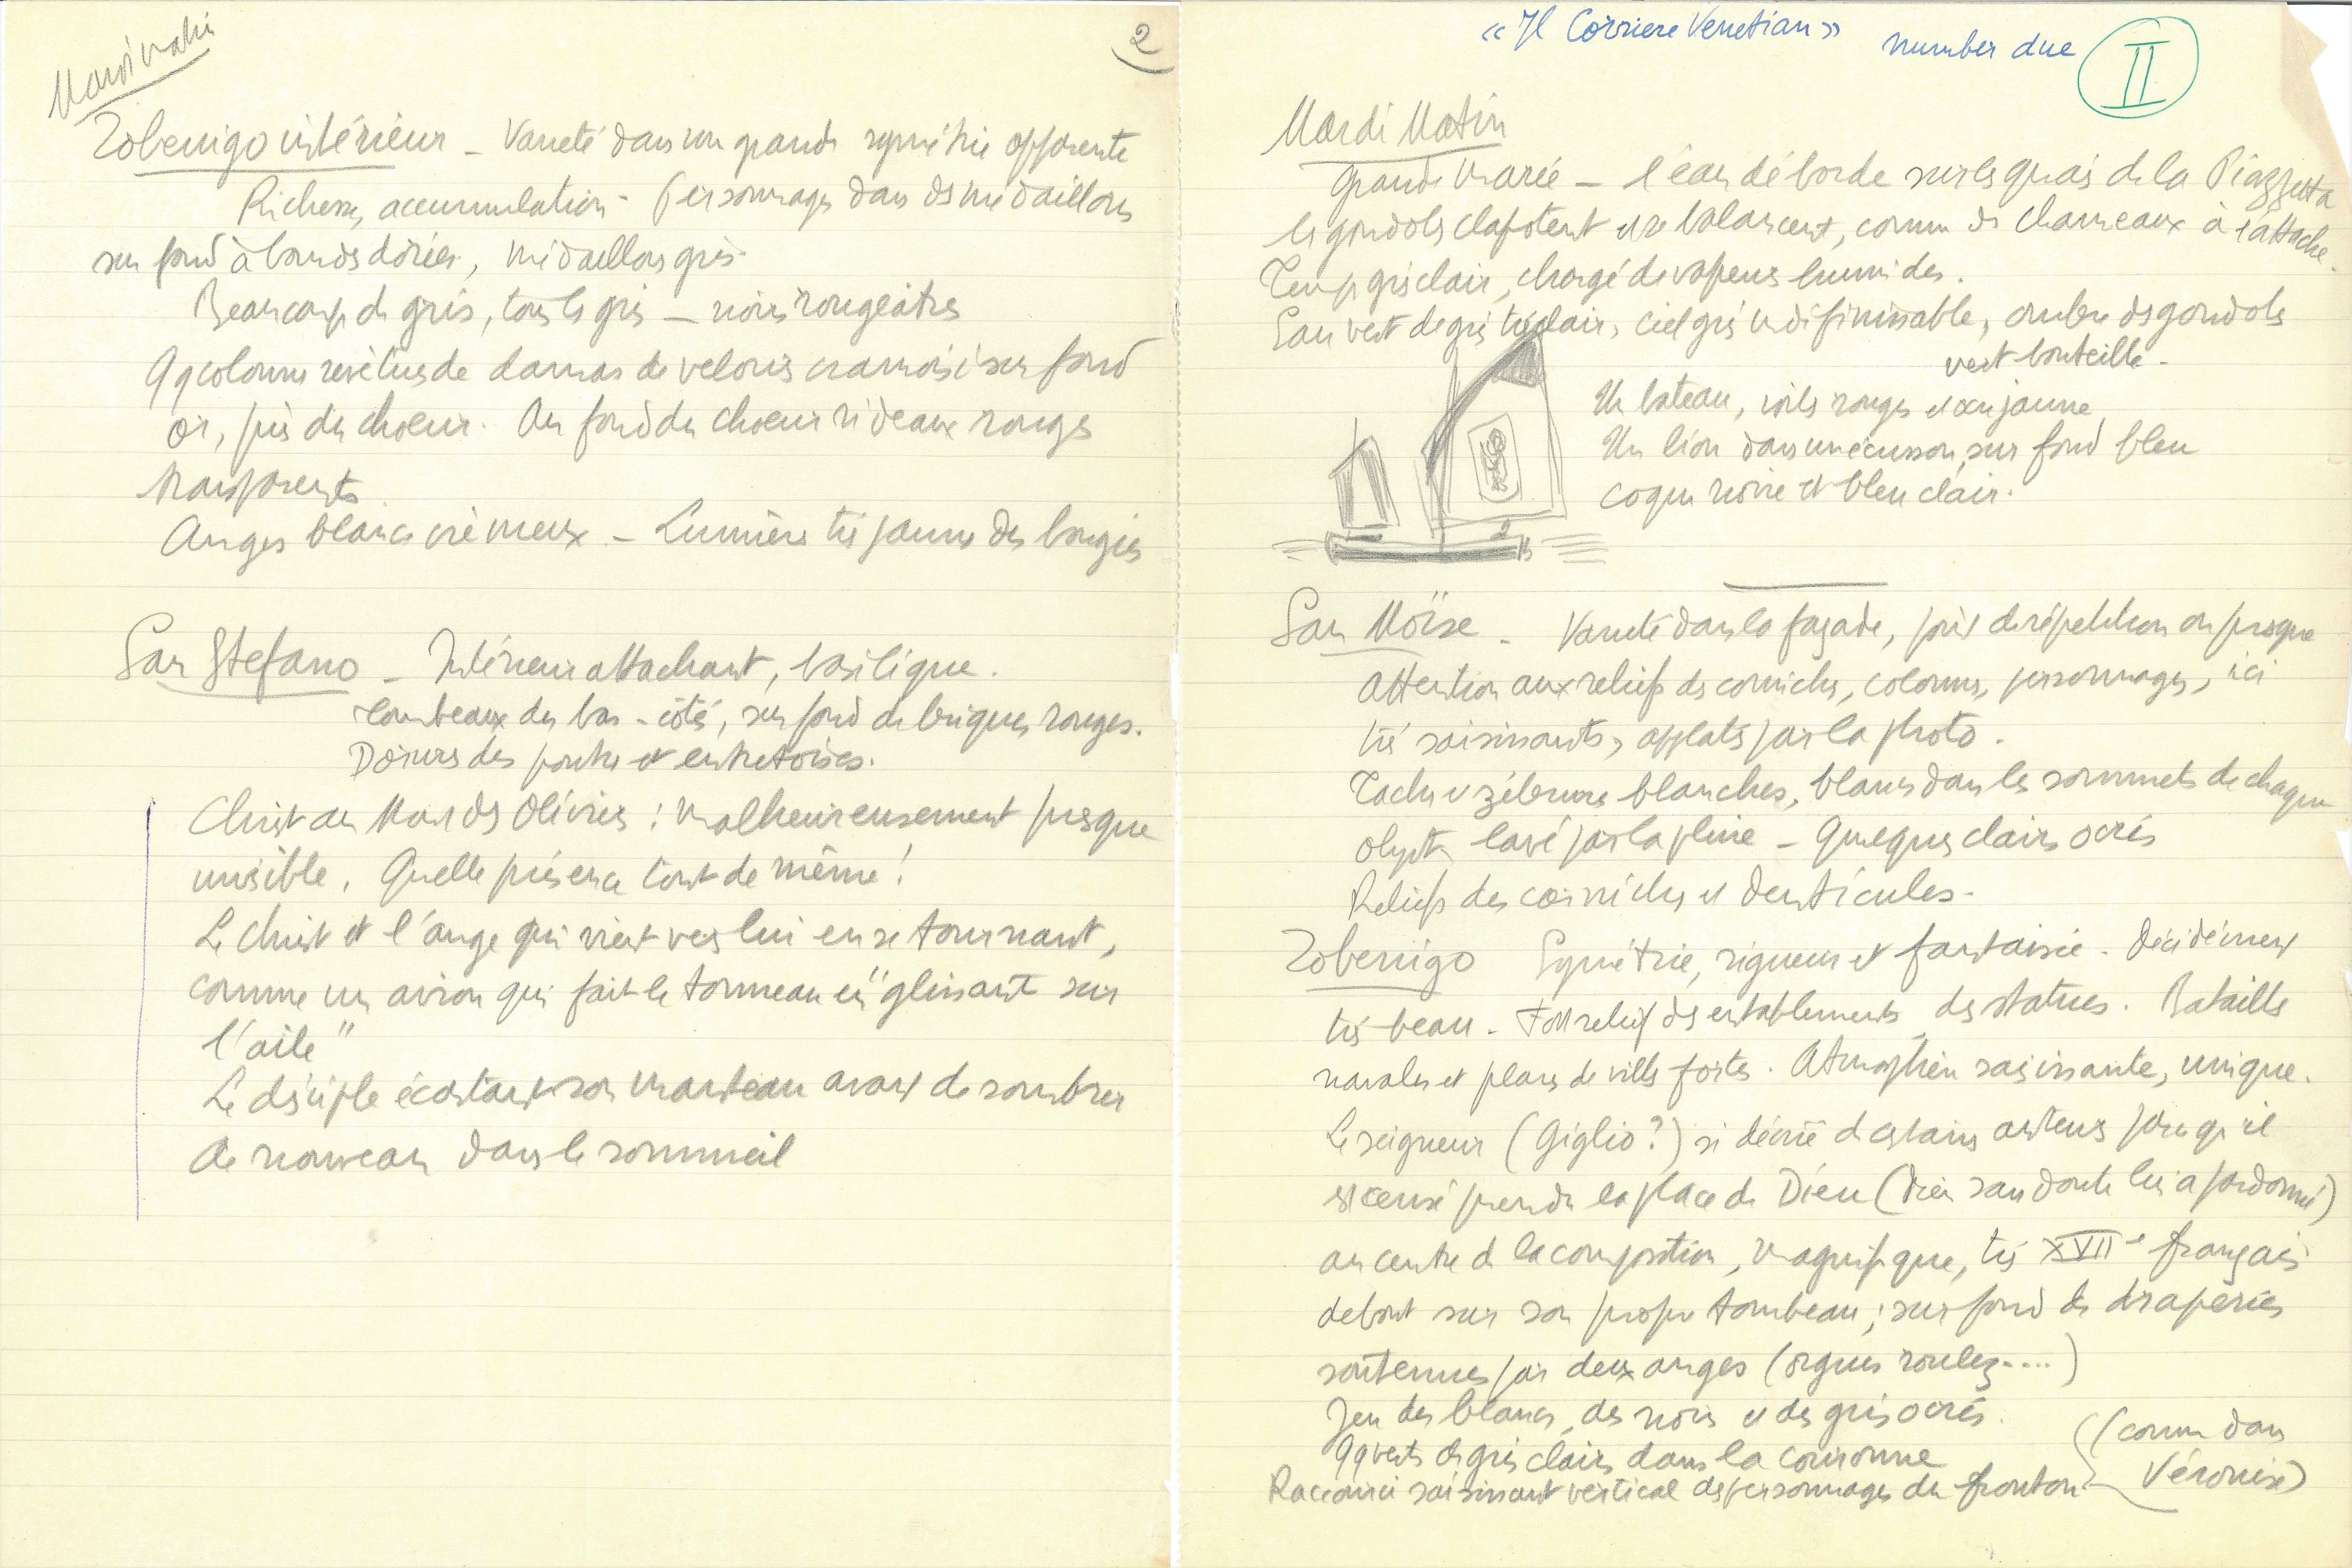 Mardi matin
2
Zobenigo intérieur – Varieté dans une grande symétrie apparente
Richesse, accumulation – Personnages dans des médaillons
sur fond à bandes dorées, médaillons gris.
Beaucoup de gris, tous les gris – noirs rougeâtres
Qq colonnes revêtues de damas de velours cramoisi sur fond
or, près du choeur. Au fond du choeur rideaux rouges
transparents
Anges blancs crèmeux – Lumière très jaune des bougies
San Stefano – Intérieur attachant, basilique.
tombeaux des bas-côtés, sur fond de briques rouges.
Dorures des poutres et entretoises.
Christ au Mont des Oliviers : malheureusement presque
invisible. Quelle présence tout de même !
Le Christ et l'ange qui vient vers lui en se tournant,
comme un avion qui fait le tonneau en "glissant sur
l'aile"
Le disciple écartant son manteau avant de sombrer
de nouveau dans le sommeil
« Il Corriere Venetian » number due II
Mardi Matin
Grande marée – l'eau déborde sur les quais de la Piazzetta
les gondoles clapotent et se balancent, comme des chameaux à l'attache.
Temps gris clair, chargé de vapeurs humides.
Eau vert de gris très clair, ciel gris indéfinissable, ombre des gondoles
vert bouteille –
Un bateau, voiles rouges et ocre jaune
Un lion dans un écusson, sur fond bleu
coque noire et bleu clair.
San Moïse – Varieté dans la façade, pas de répétition ou presque
Attention aux reliefs des corniches, colonnes, personnages, ici
très saisissants, applatis par la photo.
Taches et zébrures blanches, blanc dans les sommets de chaque
objet lavé par la pluie – Quelques clairs ocrés
Reliefs des corniches et denticules –
Zobenigo Symétrie, rigueur et fantaisie. Décidément
très beau – Fort relief des entablements, des statues. Batailles
navales et plans de villes fortes. Atmosphère saisissante, unique.
Le seigneur (Giglio ?) si décrié de certains auteurs parce qu'il
est censé prendre la place de Dieu (Dieu sans doute lui a pardonné)
au centre de la composition, magnifique, très XVIIe français
debout sur son propre tombeau ; sur fond de draperies
soutenues par deux anges (orgues roulez....)
Jeu des blancs, des noirs et des gris ocrés.
Qq verts de gris clairs dans la couronne
Raccourci saisissant vertical des personnages du fronton (comme dans
Véronèse)